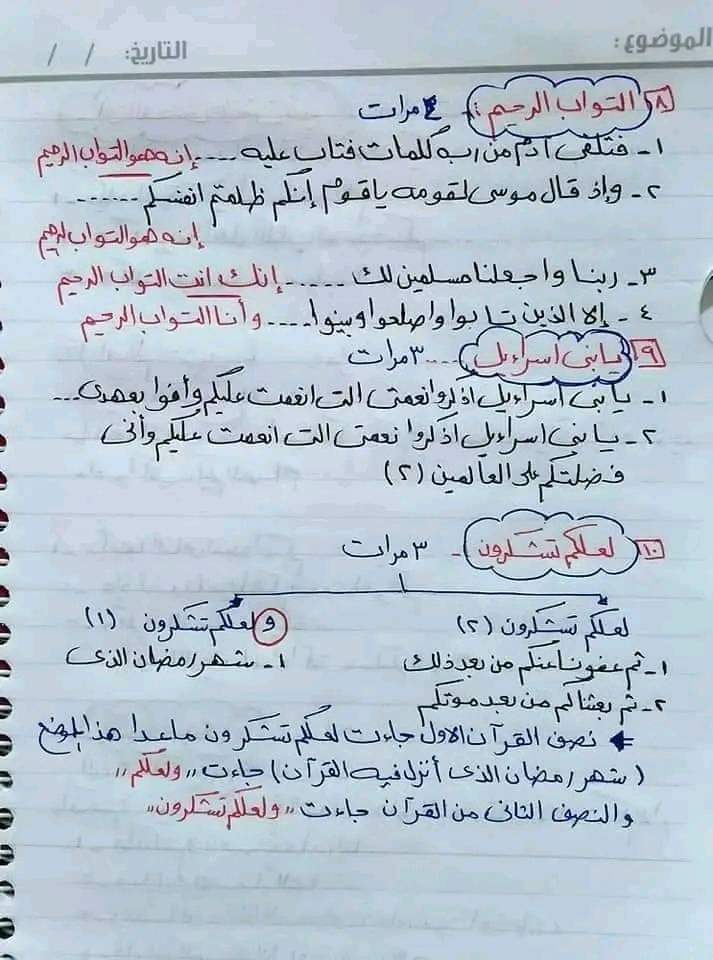 الموضوع:
التاريخ: / /
٨ التواب الرحيم: ٤ مرات
١- فتلقى آدم من ربه كلمات فتاب عليه .... إنه هو التواب الرحيم
٢- وإذ قال موسى لقومه ياقوم إنكم ظلمتم انفسكم ......
إنه هو التواب الرحيم
٣- ربنا واجعلنا مسلمين لك ...... إنك انت التواب الرحيم
٤- إلا الذين تابوا واصلحوا وبينوا .... وأنا التواب الرحيم
٩ يابنى اسراءيل ... ٣ مرات
١- يابنى اسراءيل اذكروا نعمتى التى انعمت عليكم وأفوا بعهدى...
٢- يابنى اسراءيل اذكروا نعمتى التى انعمت عليكم وأنى
فضلتكم على العالمين (٢)
١٠ لعلكم تشكرون - ٣ مرات
لعلكم تشكرون (٢)
ولعلكم تشكرون (١)
١- ثم عفونا عنكم من بعد ذلك
١- شهر رمضان الذى
٢- ثم بعثناكم من بعد موتكم
نصف القرآن الاول جاءت لعلكم تشكرون ماعدا هذا الموضع
(شهر رمضان الذى أنزل فيه القرآن) جاءت ,,ولعلكم,,
والنصف الثانى من القرآن جاءت ,,ولعلكم تشكرون,,